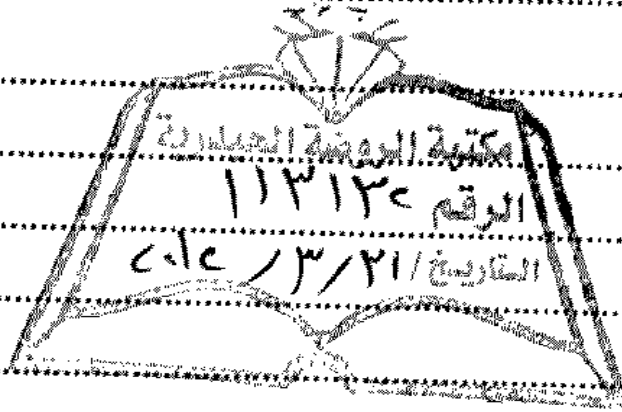 مكتبة الروضة الحيدرية
الرقم ١١٣١٣٢
التاريخ / ٣١/٣/ ٢٠١٢